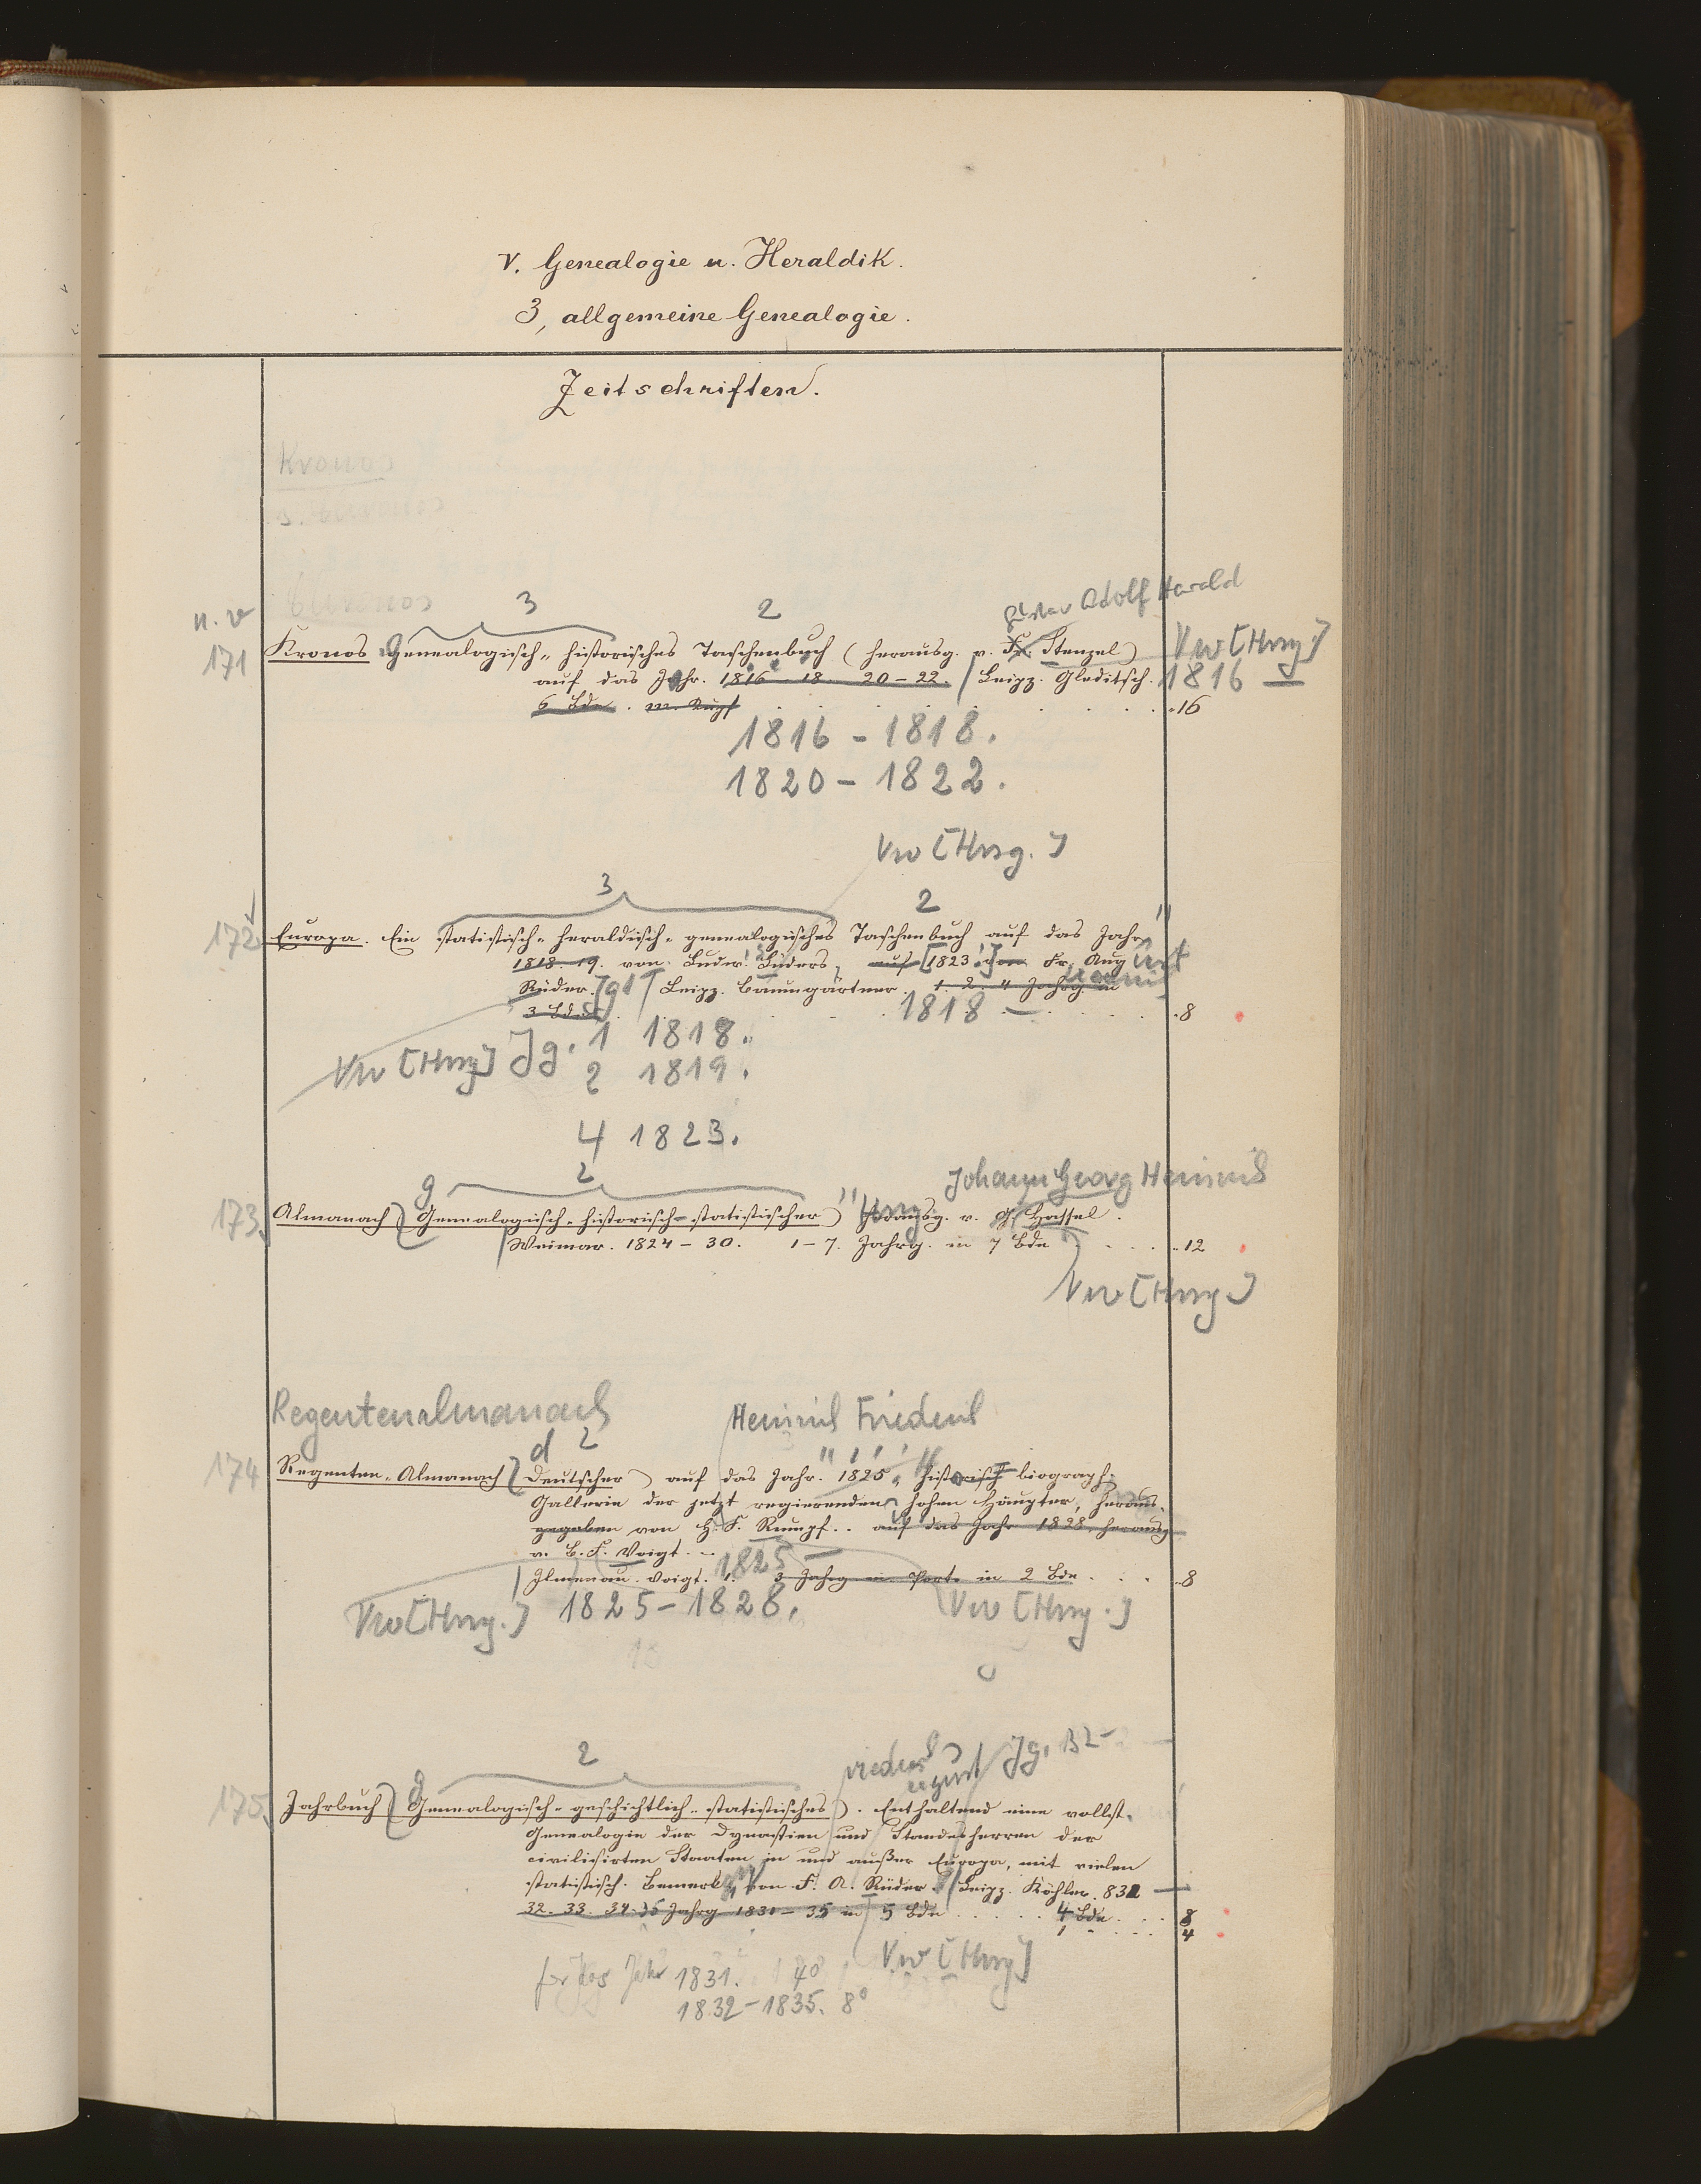 V. Genealogie u. Heraldik.
3, allgemeine Genealogie.
Zeitschriften.
Kronos
s. Chronos
Chronos
n. v
3
2
Gustav Adolf Harald
171
Kronos Genealogisch-historisches Taschenbuch (herausg. v. Fr. Stenzel)
Vw [Hrsg.]
auf das Jahr. 1816 - 18. 20 - 22. / Leipz. Gleditsch.
1816 —
6 Bde. m. Kupf
16
1816 - 1818.
1820 - 1822.
Vw [Hrsg.]
3
2
172
Europa. Ein statistisch-heraldisch-genealogisches Taschenbuch auf das Jahr
1818. 19. von Ludw. Lüders, auf [1823] von Fr. Aug
Rüder. / Leipz. Baumgärtner. 1. 2. 4 Jahrg. in
3 Bde
1818 —
8
Vw [Hrsg] Jg. 1 1818.
2 1819.
4 1823.
2
g
Johann Georg Heinrich
173.
Almanach (Genealogisch-historisch-statistischer) Herausg. v. G. Hassel.
Weimar. 1824 - 30. 1 - 7. Jahrg. in 7 Bde
12
Vw [Hrsg.]
Regentenalmanach
Heinrich Friedrich
d 2
174
Regenten-Almanach (Deutscher) auf das Jahr. 1825, historisch biograph.
Gallerie der jetzt regierenden hohen Häupter, heraus-
gegeben von H. F. Rumpf.. auf das Jahr 1828, herausg
v. B. F. Voigt. —
1825 —
Ilmenau. Voigt. 1. 3 Jahrg m. Port. in 2 Bde
8
Vw [Hrsg.] 1825 - 1828.
Vw [Hrsg.]
2
Jg. 32 -
g
175.
Jahrbuch (Genealogisch-geschichtlich-statistisches). Enthaltend eine vollst.
Genealogie der Dynastien und Standesherren der
civilisirten Staaten in und außer Europa, mit vielen
statistisch. Bemerk. von F. A. Rüder. / Leipz. Köhler. 832 —
32. 33. 34. 35 Jahrg 1831 - 35 in 5 Bde
4 Bde
8
1 "
4
für das Jahr 1831. 4°
Vw [Hrsg]
1832 - 1835. 8°